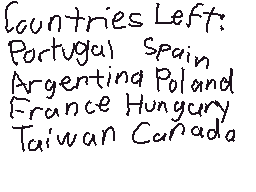 Countries Left:
Portugal Spain
Argentina Poland
France Hungary
Taiwan Canada